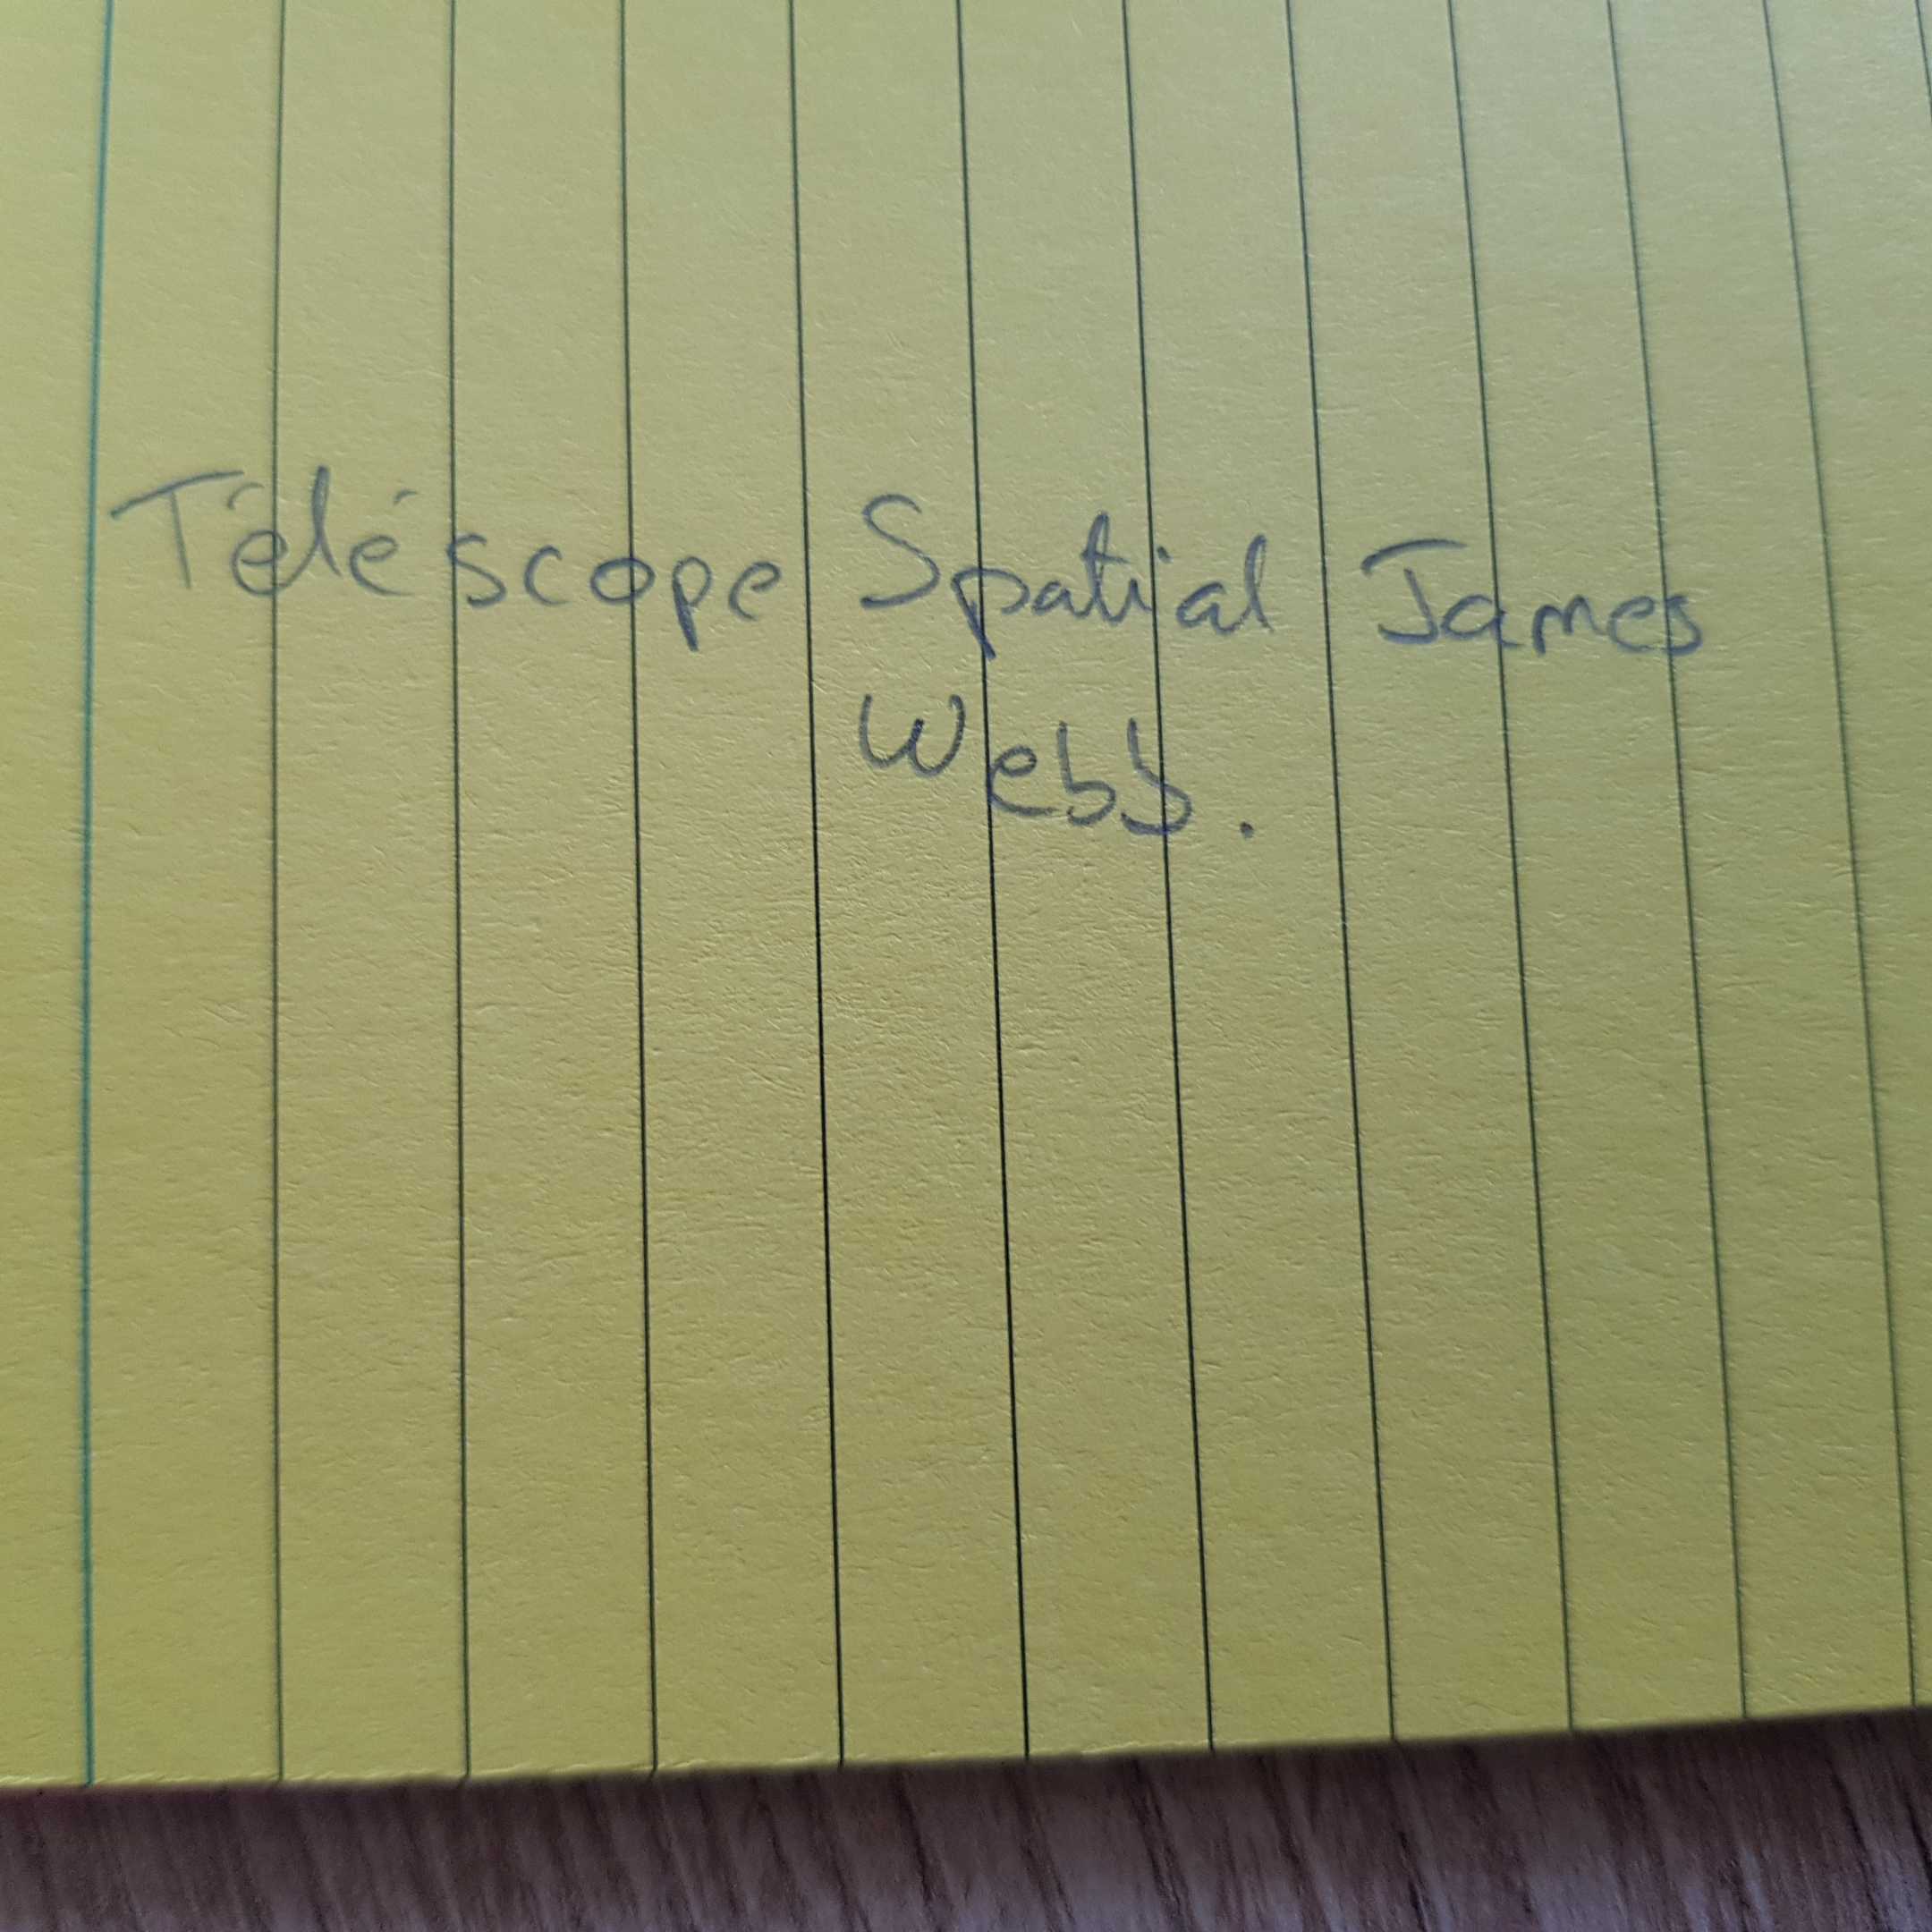 Téléscope Spatial James
Webb.